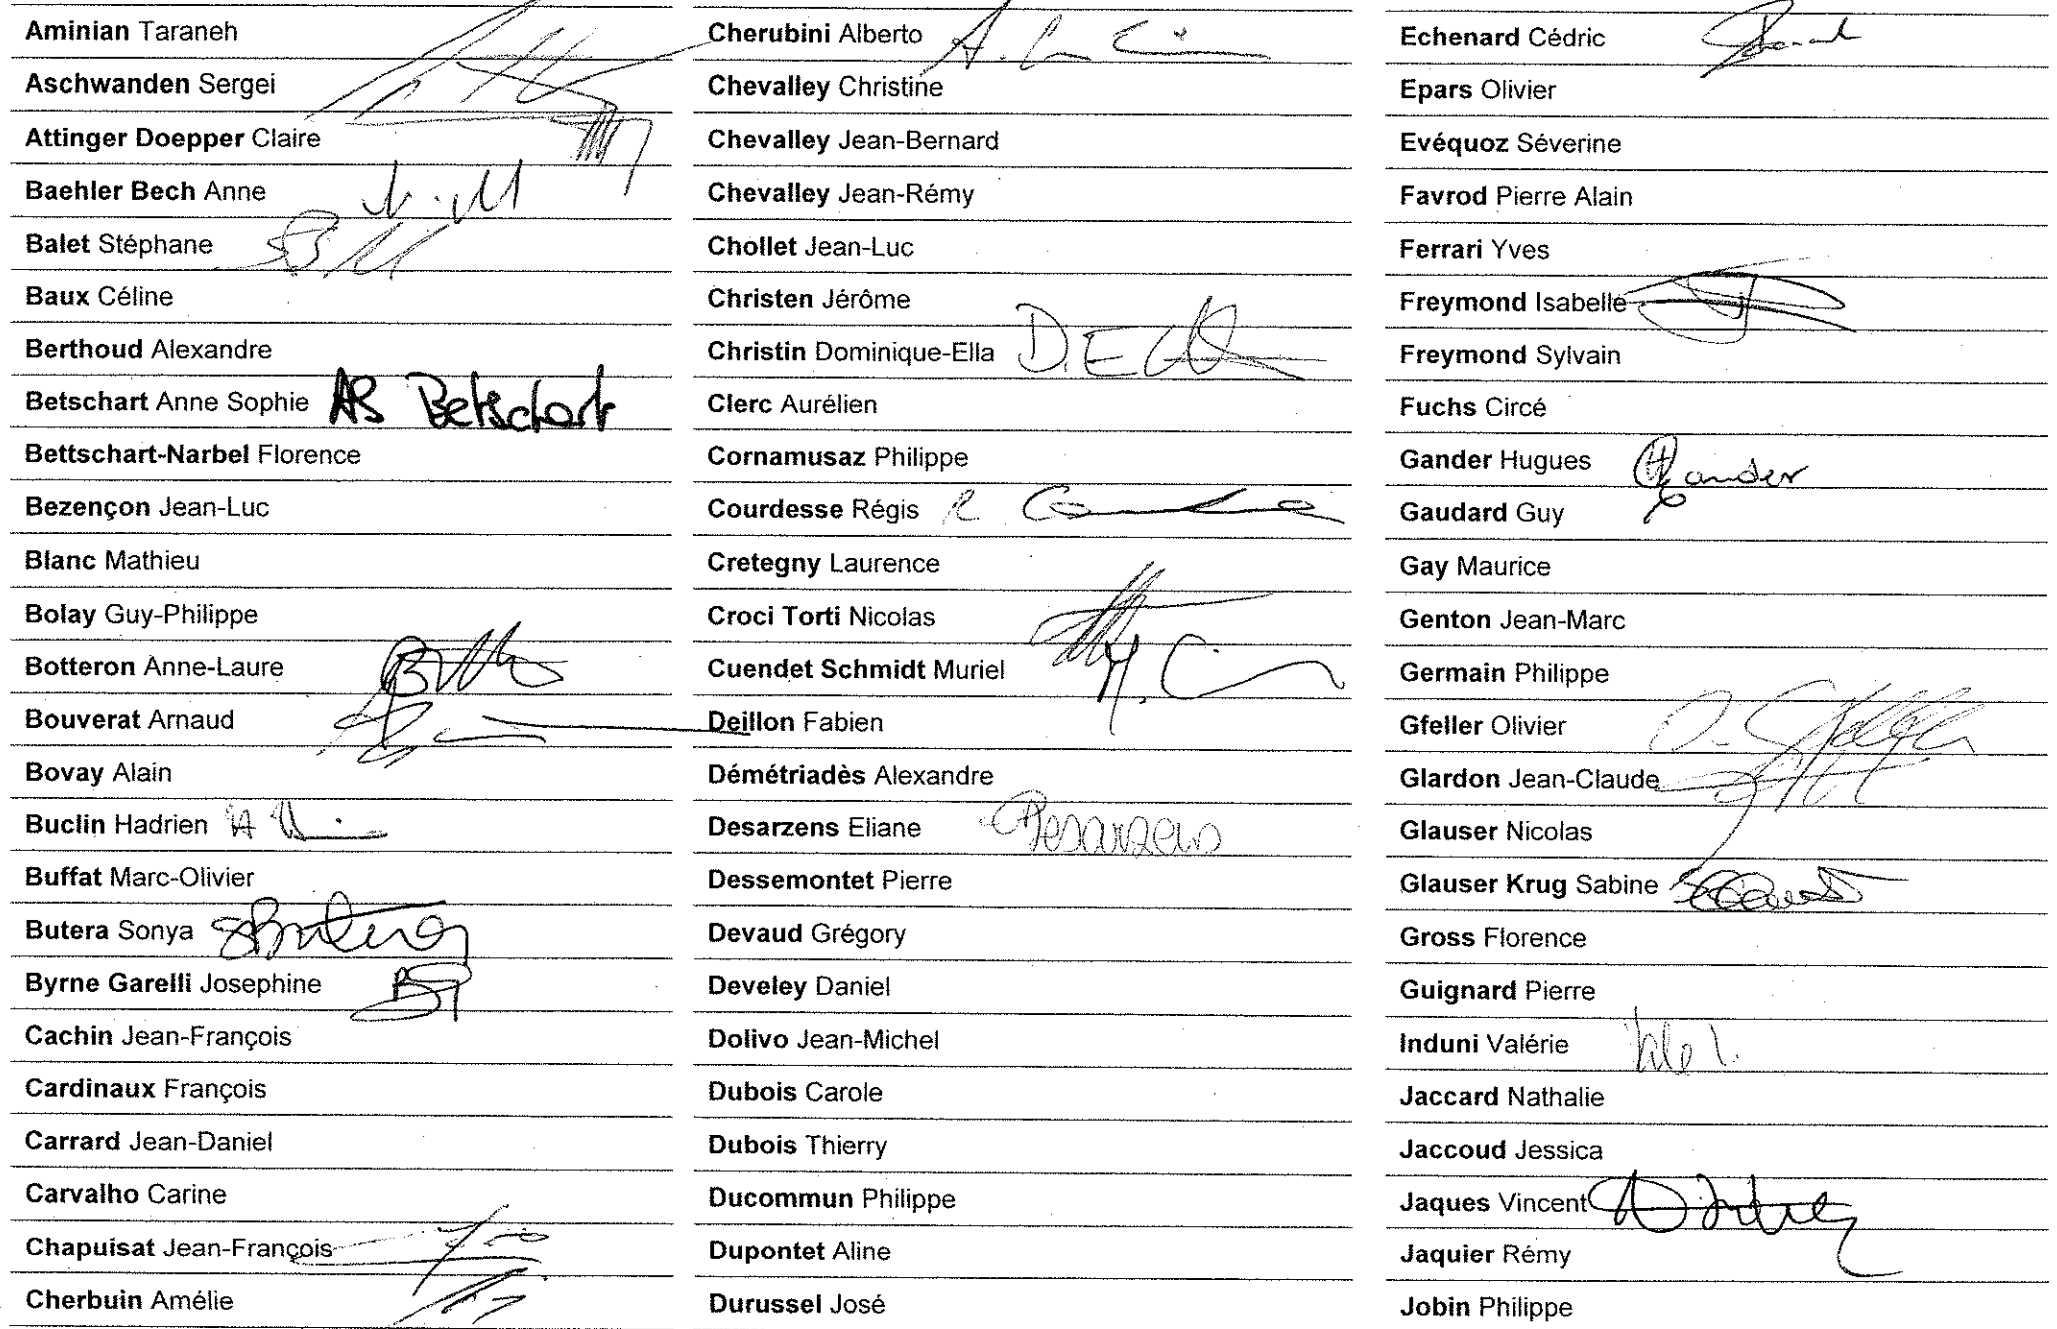 Aminian Taraneh
Aschwanden Sergei
Attinger Doepper Claire
Baehler Bech Anne
Balet Stéphane
Baux Céline
Berthoud Alexandre
Betschart Anne Sophie AS Betschart
Bettschart-Narbel Florence
Bezençon Jean-Luc
Blanc Mathieu
Bolay Guy-Philippe
Botteron Anne-Laure
Bouverat Arnaud
Bovay Alain
Buclin Hadrien
Buffat Marc-Olivier
Butera Sonya SButera
Byrne Garelli Josephine
Cachin Jean-François
Cardinaux François
Carrard Jean-Daniel
Carvalho Carine
Chapuisat Jean-François
Cherbuin Amélie
Cherubini Alberto
Chevalley Christine
Chevalley Jean-Bernard
Chevalley Jean-Rémy
Chollet Jean-Luc
Christen Jérôme
Christin Dominique-Ella
Clerc Aurélien
Cornamusaz Philippe
Courdesse Régis
Cretegny Laurence
Croci Torti Nicolas
Cuendet Schmidt Muriel
Deillon Fabien
Démétriadès Alexandre
Desarzens Eliane Desarzens
Dessemontet Pierre
Devaud Grégory
Develey Daniel
Dolivo Jean-Michel
Dubois Carole
Dubois Thierry
Ducommun Philippe
Dupontet Aline
Durussel José
Echenard Cédric
Epars Olivier
Evéquoz Séverine
Favrod Pierre Alain
Ferrari Yves
Freymond Isabelle
Freymond Sylvain
Fuchs Circé
Gander Hugues HGander
Gaudard Guy
Gay Maurice
Genton Jean-Marc
Germain Philippe
Gfeller Olivier O. Gfeller
Glardon Jean-Claude
Glauser Nicolas
Glauser Krug Sabine
Gross Florence
Guignard Pierre
Induni Valérie
Jaccard Nathalie
Jaccoud Jessica
Jaques Vincent
Jaquier Rémy
Jobin Philippe